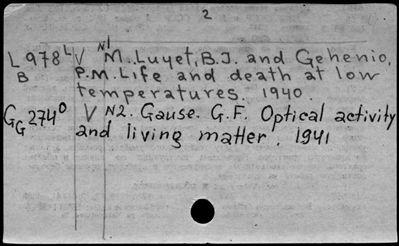 2
L978L V N1 M. Luyet, B.J. and Gehenio,
B P.M. Life and death at low
temperatures. 1940.
GG274° V N2. Gause. G.F. Optical activity
and living matter. 1941